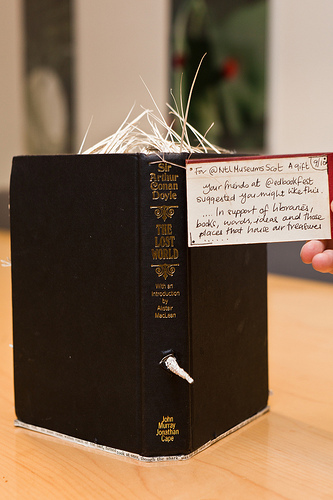 Sir
Arthur
Conan
Doyle
THE
LOST
WORLD
With an
introduction
by
Alistair
MacLean
John
Murray
Jonathan
Cape
For @NtlMuseumsScot A gift
Your friends at @edbookfest
suggested you might like this
.... In support of libraries,
books, words, ideas and those
places that house our treasures
......